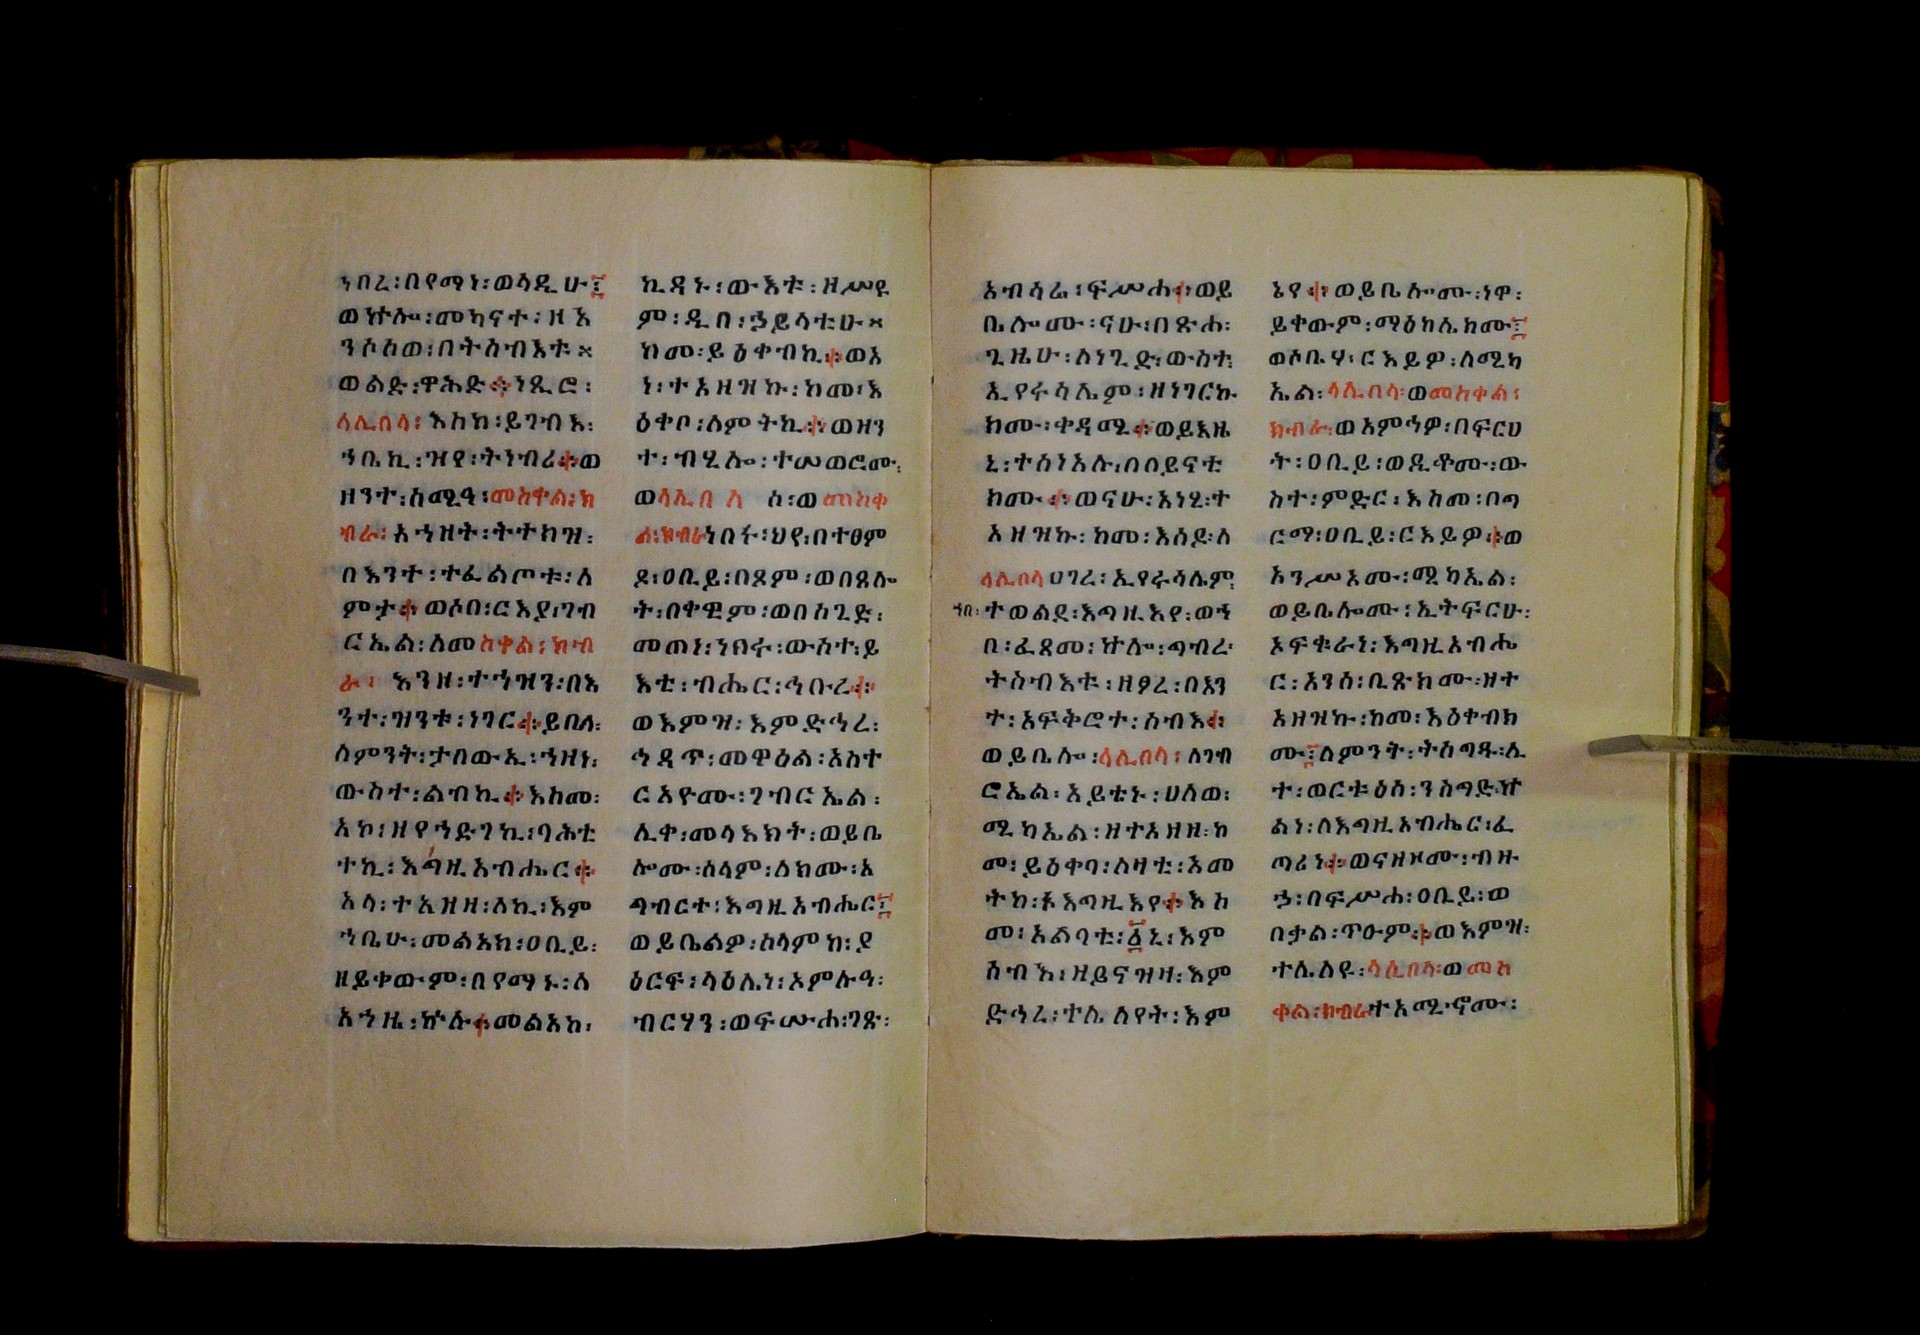 ነበረ፡በየማነ፡ወላዲሁ፤
ወኵሎ፡መካናተ፡ዘአ
ንሶስወ፡በትስብእቱ
ወልድ፡ዋሕድ።ነጺሮ፡
ላሊበላ፡እስከ፡ይገብእ፡
ኀቤኪ፡ዝየ፡ትነብሪ።ወ
ዘንተ፡ሰሚዓ፡መስቀል፡ክ
ብራ፡አኀዘት፡ትተክዝ፡
በእንተ፡ተፈልጦቱ፡ለ
ምታ።ወሶበ፡ርእያ፡ገብ
ርኤል፡ለመስቀል፡ክብ
ራ፡እንዘ፡ተኀዝን፡በእ
ንተ፡ዝንቱ፡ነገር።ይበላ፡
ለምንት፡ታበውኢ፡ኀዘነ፡
ውስተ፡ልብኪ።እስመ፡
አኮ፡ዘየኀድገኪ፡ባሕቲ
ተኪ፡እግዚአብሔር።
አላ፡ተአዘዘ፡ለኪ፡እም
ኀቤሁ፡መልአክ፡ዐቢይ፡
ዘይቀውም፡በየማኑ፡ለ
አኀዜ፡ኵሉ።መልአከ፡
ኪዳኑ፡ውእቱ፡ዘሥዩ
ም፡ዲበ፡ኃይላቲሁ
ከመ፡ይዕቀብኪ።ወአ
ነ፡ተአዘዝኩ፡ከመ፡እ
ዕቀቦ፡ለምትኪ።ወዘን
ተ፡ብሂሎ፡ተሠወሮሙ፡
ወላሊበላ ስ፡ወመስቀ
ል፡ክብራነበሩ፡ህየ፡በተፀም
ዶ፡ዐቢይ፡በጾም፡ወበጸሎ
ት፡በቀዊም፡ወበስጊድ፡
መጠነ፡ነበሩ፡ውስተ፡ይ
እቲ፡ብሔር፡ኅቡረ።
ወእምዝ፡እምድኅረ፡
ኅዳጥ፡መዋዕል፡አስተ
ርአዮሙ፡ገብርኤል፡
ሊቀ፡መላእክት፡ወይቤ
ሎሙ፡ሰላም፡ለክሙ፡አ
ግብርተ፡እግዚአብሔር፤
ወይቤልዎ፡ሰላምከ፡ያ
ዕርፍ፡ላዕሌነ፡ኦምሉዓ፡
ብርሃን፡ወፍሡሐ፡ገጽ፡
አብሳሬ፡ፍሥሐ።ወይ
ቤሎሙ፡ናሁ፡በጽሐ፡
ጊዜሁ፡ለነጊድ፡ውስተ፡
ኢየሩሳሌም፡ዘነገርኩ
ክሙ፡ቀዳሚ።ወይእዜ
ኒ፡ተስነአሉ፡በበይናቲ
ክሙ።ወናሁ፡አነሂ፡ተ
አዘዝኩ፡ከመ፡እሰዶ፡ለ
ላሊበላሀገረ፡ኢየሩሳሌም፡
ኀበ፡ተወልደ፡እግዚእየ፡ወኀ
በ፡ፈጸመ፡ኵሎ፡ግብረ
ትስብእቱ፡ዘፆረ፡በእን
ተ፡አፍቅሮተ፡ሰብእ።
ወይቤሎ፡ላሊበላ፡ለገብ
ርኤል፡አይቴኑ፡ሀለወ፡
ሚካኤል፡ዘተአዘዘ፡ከ
መ፡ይዕቀባ፡ለዛቲ፡አመ
ትከ፡ኦእግዚእየ።እስ
መ፡አልባቲ፡፩ኒ፡እም
ሰብእ፡ዘይናዝዛ፡እም
ድኅረ፡ተሌለየት፡እም
ኔየ።ወይቤሎሙ፡ነዋ፡
ይቀውም፡ማዕከሌክሙ፤
ወሶቤሃ፡ርእይዎ፡ለሚካ
ኤል፡ላሊበላ፡ወመስቀል፡
ክብራ፡ወአምኅዎ፡በፍርሀ
ት፡ዐቢይ፡ወዲቆሙ፡ው
ስተ፡ምድር፡እስመ፡በግ
ርማ፡ዐቢይ፡ርእይዎ።ወ
አንሥአሙ፡ሚካኤል፡
ወይቤሎሙ፡ኢትፍርሁ፡
ኦፍቁራነ፡እግዚአብሔ
ር፡አንሰ፡ቢጽክሙ፡ዘተ
አዘዝኩ፡ከመ፡እዕቀብክ
ሙ፤ለምንት፡ትሰግዱ፡ሊ
ተ፡ወርቱዕሰ፡ንስግድኵ
ልነ፡ለእግዚአብሔር፡ፈ
ጣሪነ።ወናዘዞሙ፡ብዙ
ኃ፡በፍሥሐ፡ዐቢይ፡ወ
በቃል፡ጥዑም።ወእምዝ፡
ተሌለዩ፡ላሊበላ፡ወመስ
ቀል፡ክብራተአሚኖሙ፡